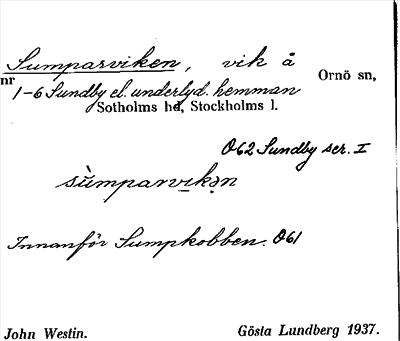 Sumparviken, vik å
Ornö sn,
nr
1-6 Sundby el. underlyd. hemman
Sotholms hd, Stockholms l.
Ö62 Sundby ser. I
sùmparvikən
Innanför Sumpkobben. Ö61
John Westin.
Gösta Lundberg 1937.